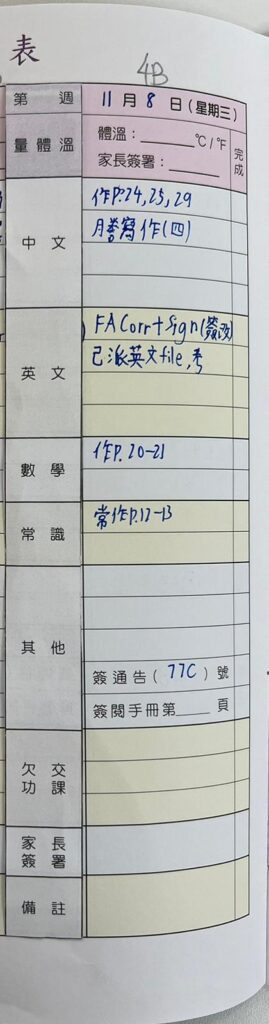 表
4B
第 週 11月8日(星期三)
量體溫 體溫:______°C/°F 完成
家長簽署:______
中文 作P.24,25,29
謄寫作(四)
英文 FA Corr+Sign(簽改)
已派英文file,考
數學 作P.20-21
常識 常作P.12-13
其他
簽通告(77C)號
簽閱手冊第____頁
欠交功課
家長簽署
備註